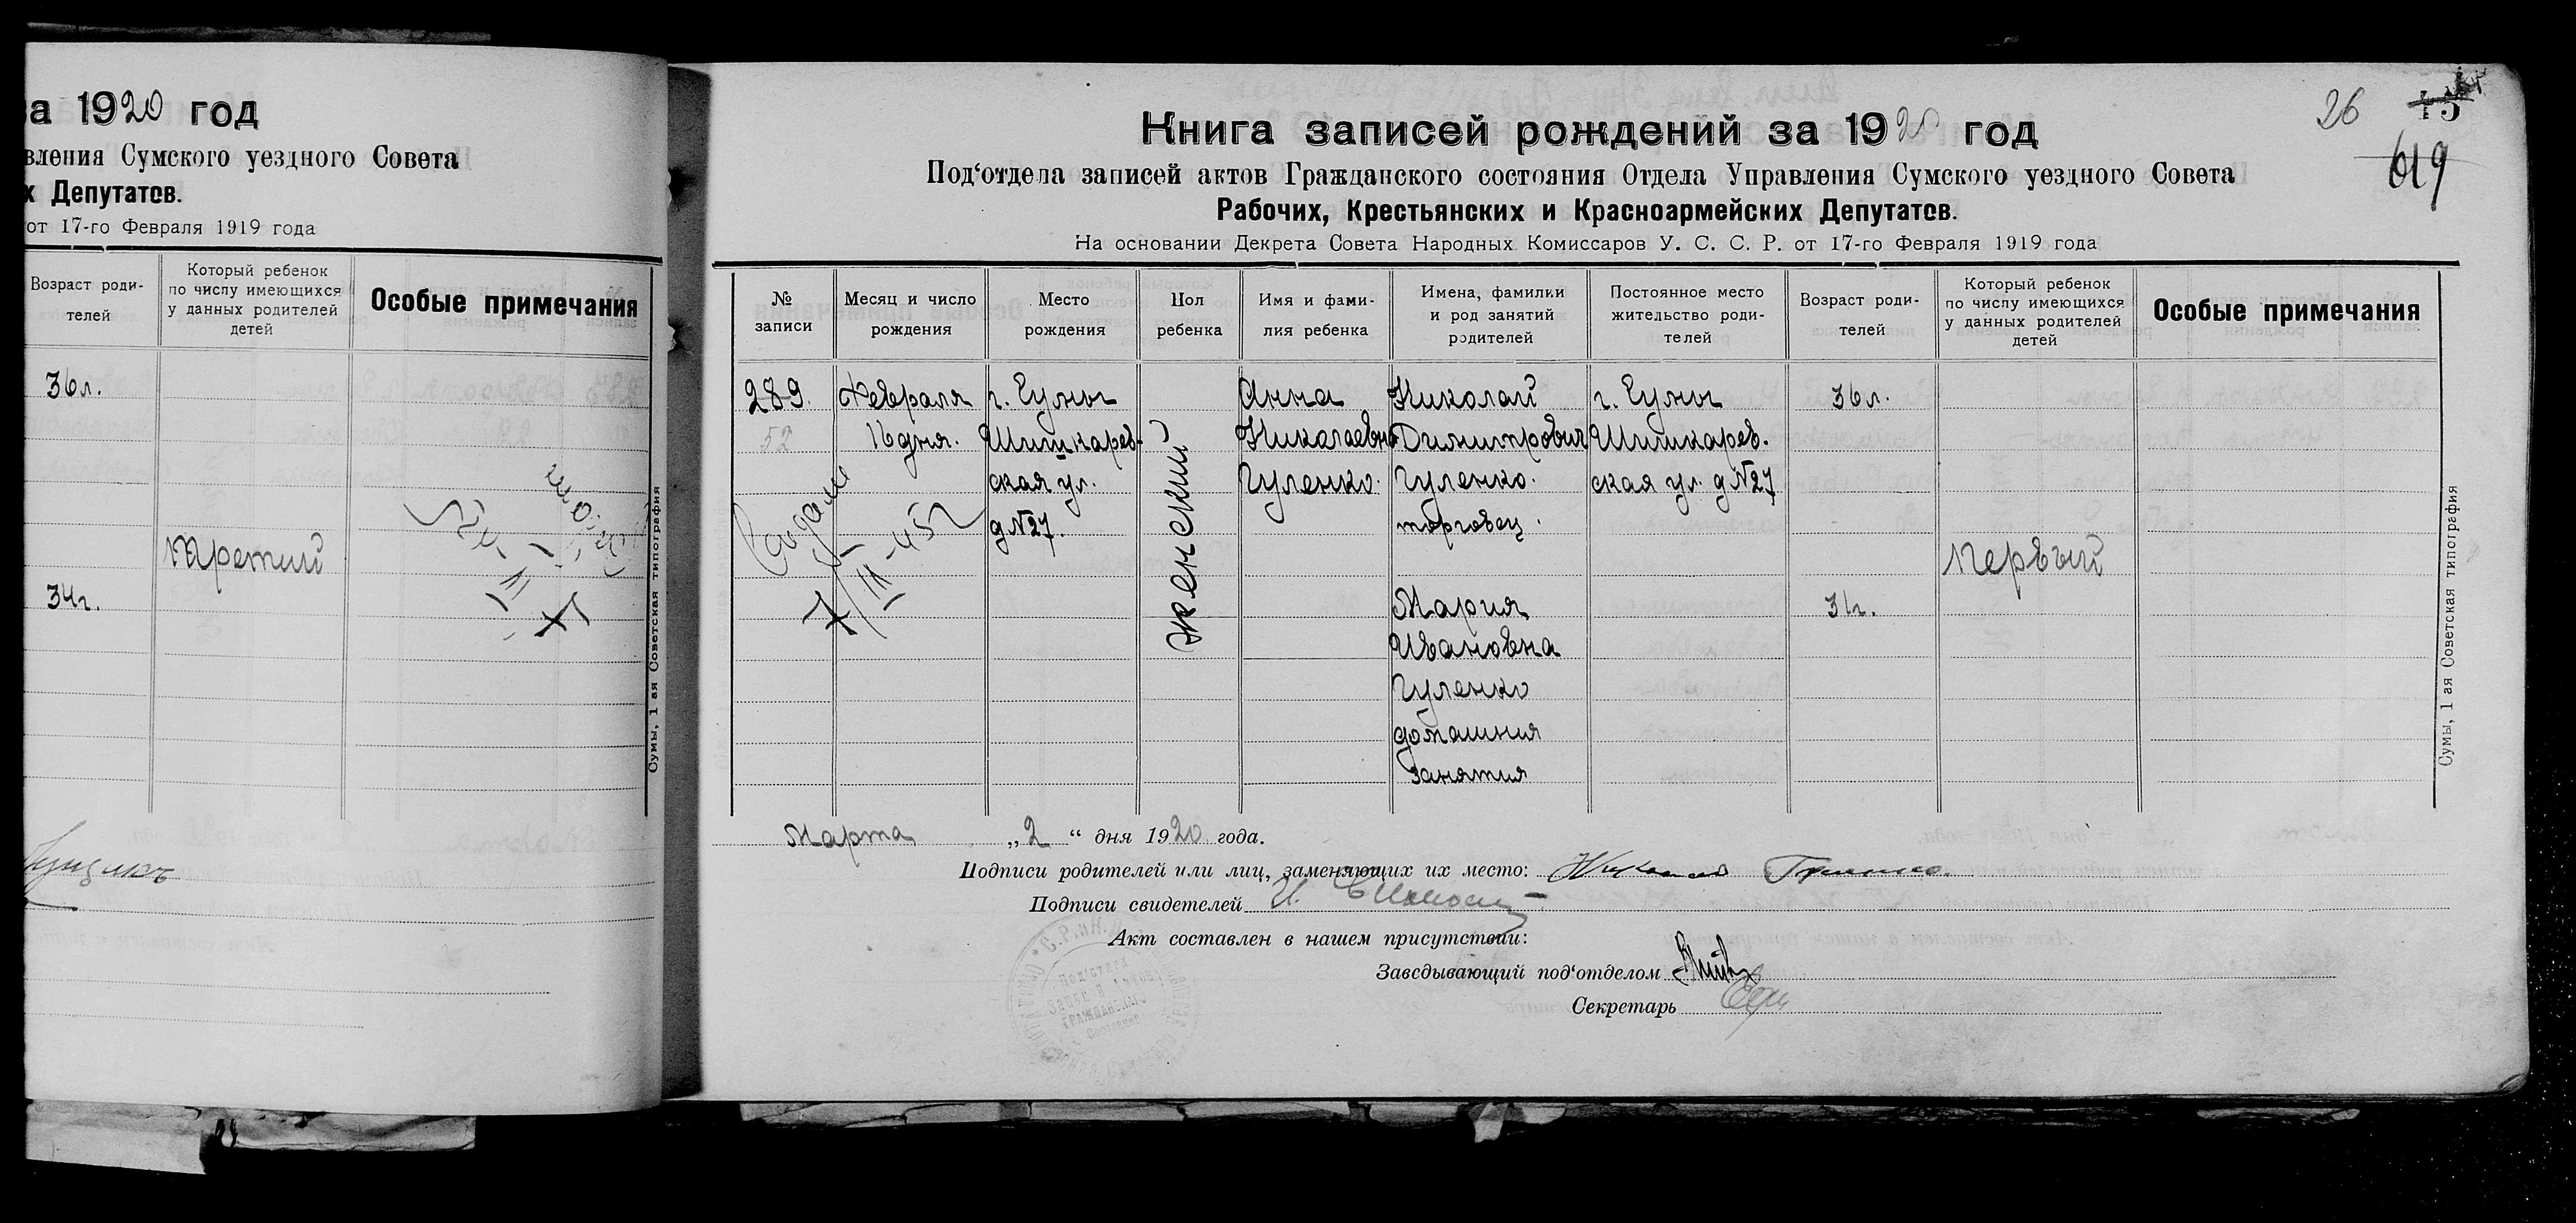 за 1920 год
вления Сумского уездного Совета
х Депутатов.
от 17-го Февраля 1919 года
Возраст роди-
телей
Который ребенок
по числу имеющихся
у данных родителей
детей
Особые примечания
36л.
третий
34г.
Сумы, 1 ая Советская типография
26
45
619
Книга записей рождений за 1920 год
Под‘отдела записей актов Гражданского состояния Отдела Управления Сумского уездного Совета
Рабочих, Крестьянских и Красноармейских Депутатов.
На основании Декрета Совета Народных Комиссаров У. С. С. Р. от 17-го Февраля 1919 года
№
записи
Месяц и число
рождения
Место
рождения
Пол
ребенка
Имя и фами-
лия ребенка
Имена, фамилии
и род занятий
родителей
Постоянное место
жительство роди-
телей
Возраст роди-
телей
Который ребенок
по числу имеющихся
у данных родителей
детей
Особые примечания
289.
52
Февраля
16 дня.
г. Сумы
Шишкарев-
ская ул.
д №27.
женский
Анна
Николаевна
Гуленко.
Николай
Димитрович
Гуленко.
торговец.
Мария
Ивановна
Гуленко
домашния
занятия
г. Сумы
Шишкарев.
ская ул. д №27
36л.
31г.
первый
Сумы, 1 ая Советская типография
Марта „2“ дня 1920 года.
Подписи родителей или лиц, заменяющих их место: Николай Гуленко.
Подписи свидетелей И.
Акт составлен в нашем присутствии:
Заведывающий под‘отделом
Секретарь